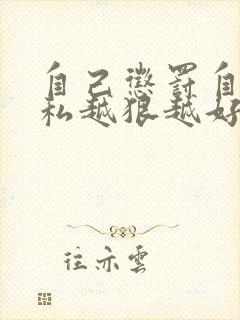 自己惩罚自
私越狠越好
往亦雲